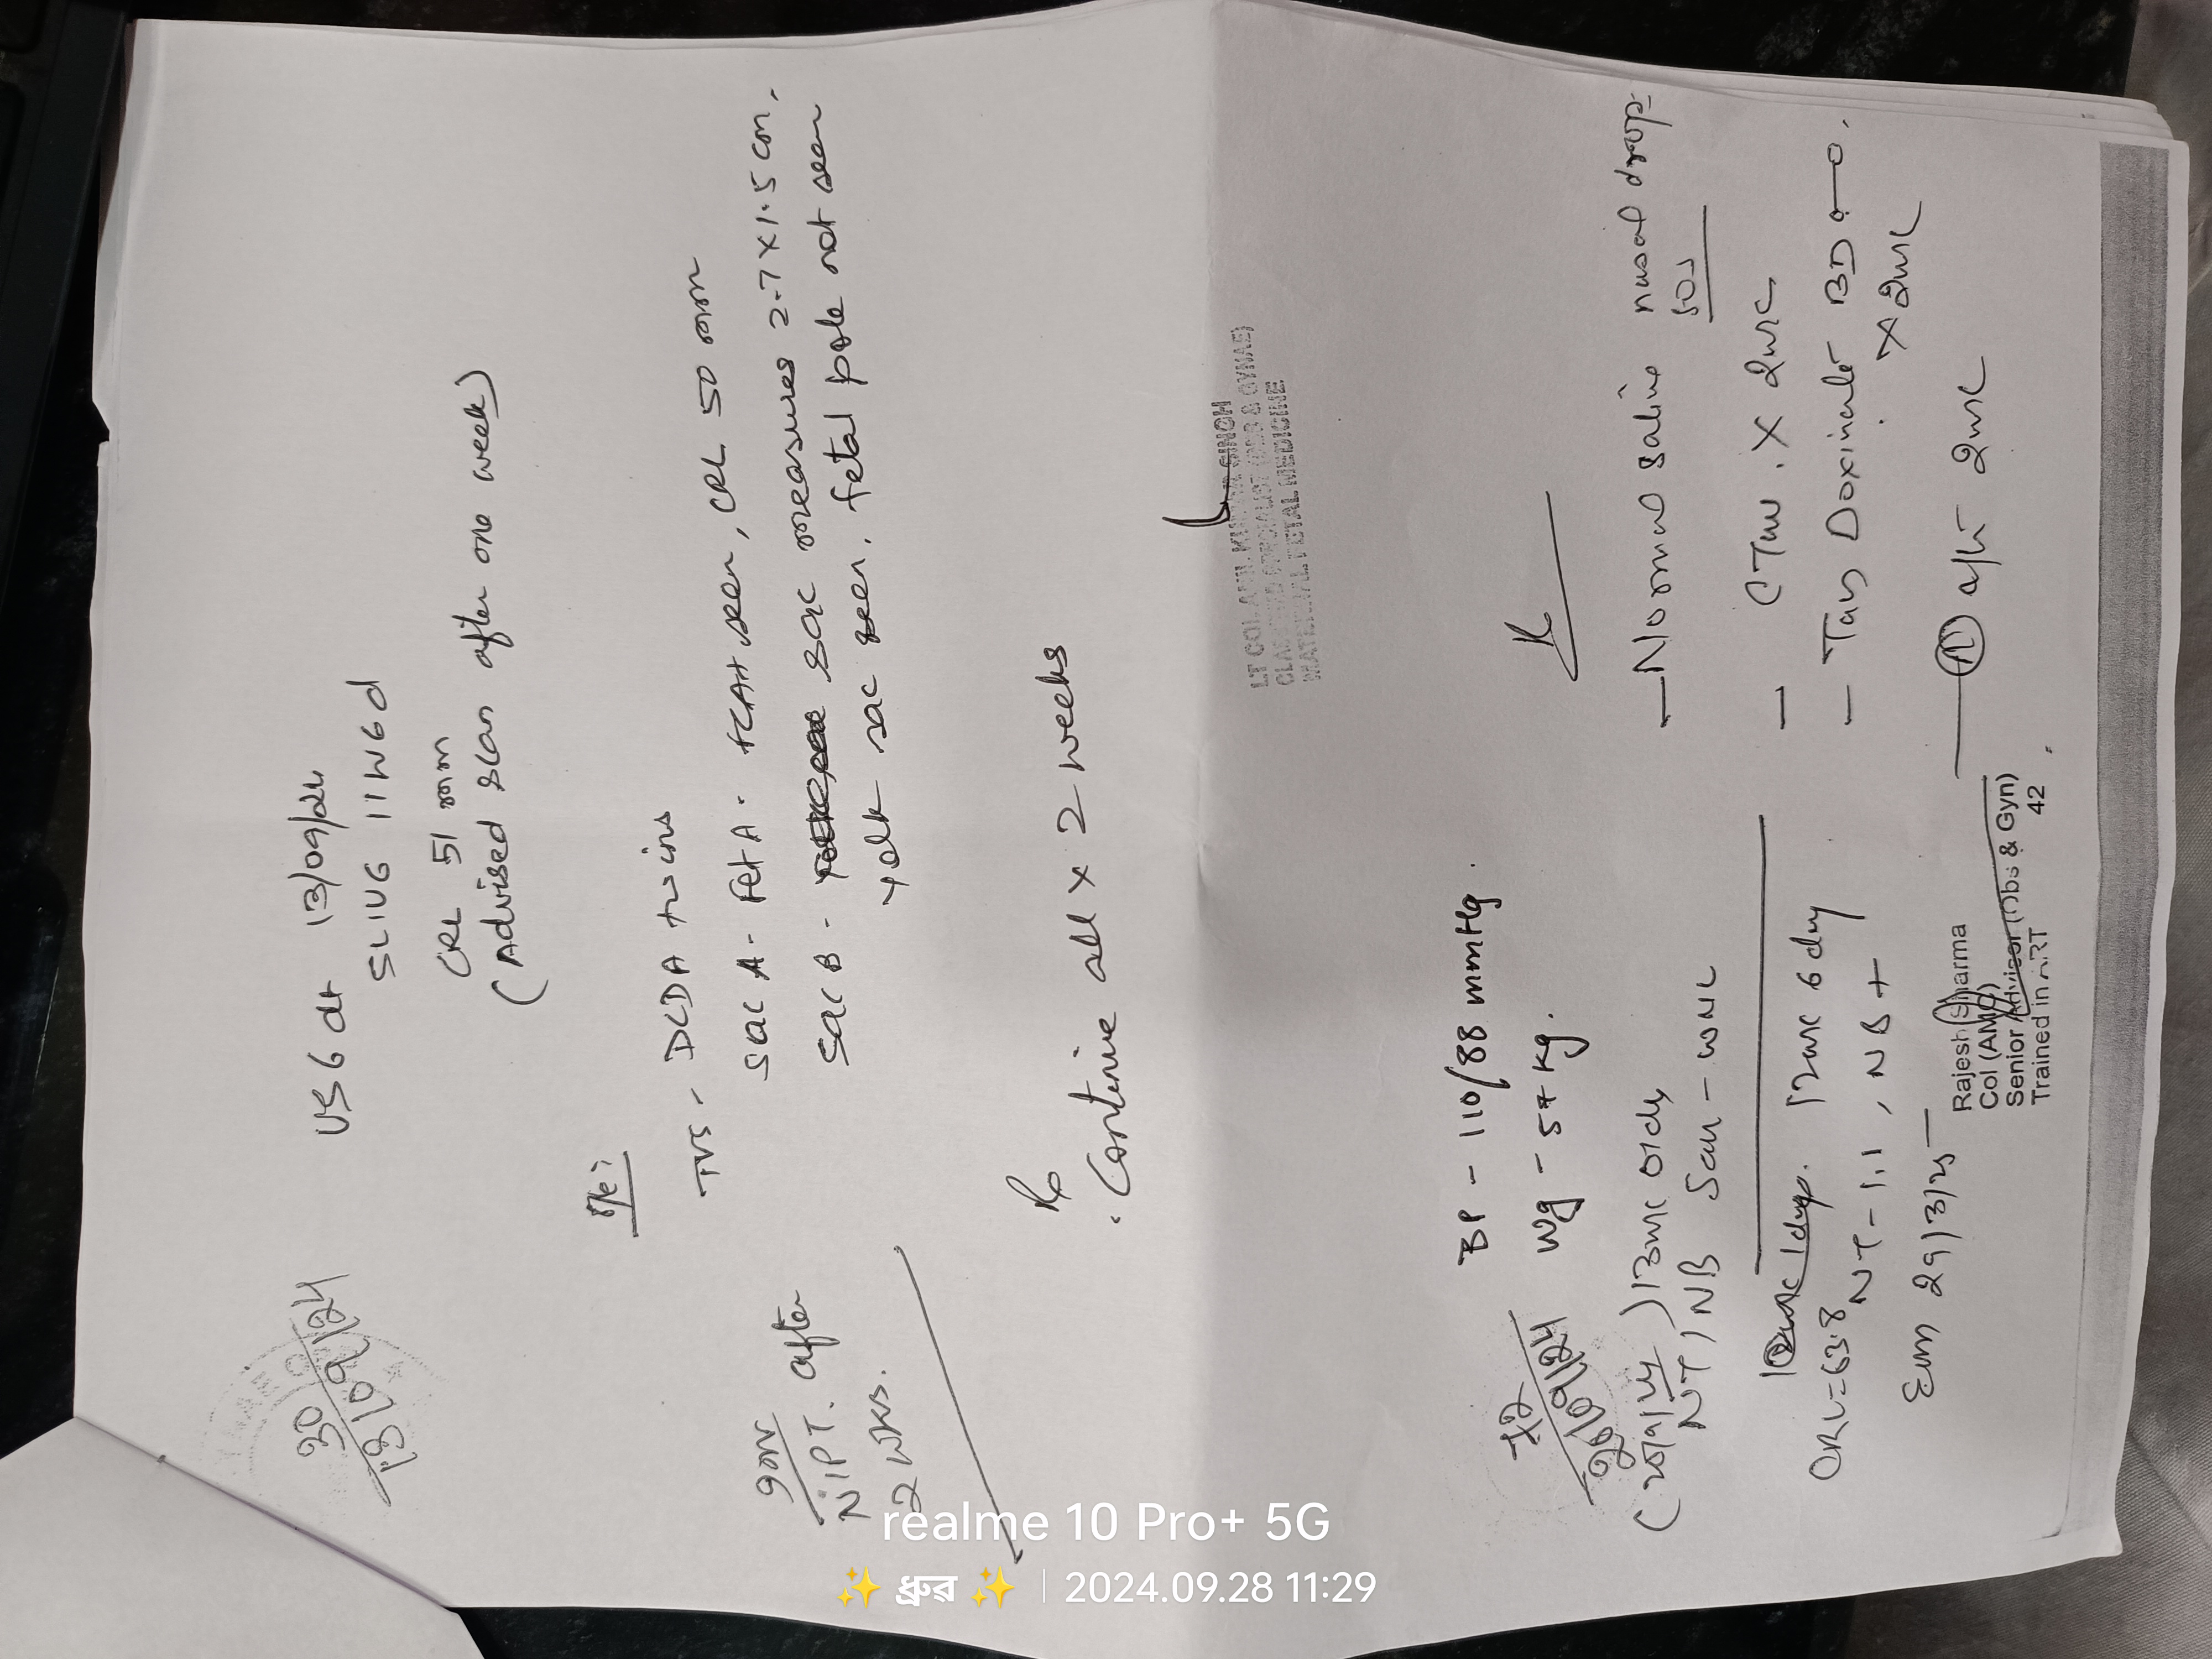 30
13/09/24
USG dt 13/09/24
SLIUG 11W6d
CRL 51 mm
(Advised scan after one week)
TVS - DCDA twins
Sac A - Fet A. FCAH seen, CRL 50 mm
Sac B - sac measures 2.7 x 1.5 cm.
yolk sac seen, fetal pole not seen
NIPT. after
2 wks.
Rx
. Continue all x 2 weeks
LT COL ANIL KUMAR SINGH
CLASSIFIED SPECIALIST (OBS & GYNAE)
MATERNAL FETAL MEDICINE
BP - 110/88 mmHg.
Wg - 57 kg.
26/09/24
13wk 01dy
NT / NB Scan - WNL
12wk 6 day
CRL = 63.8
NT - 1.1, NB +
29/3/25
Rajesh Sharma
Col (AMC)
Senior Advisor (Obs & Gyn)
Trained in ART
42
Rx
— Normal saline nasal drop
SOS
— CTM . X 2wk
— Tab Doxinate BD
X 2wk
2wk
realme 10 Pro+ 5G
✨ ध्रुव ✨ | 2024.09.28 11:29